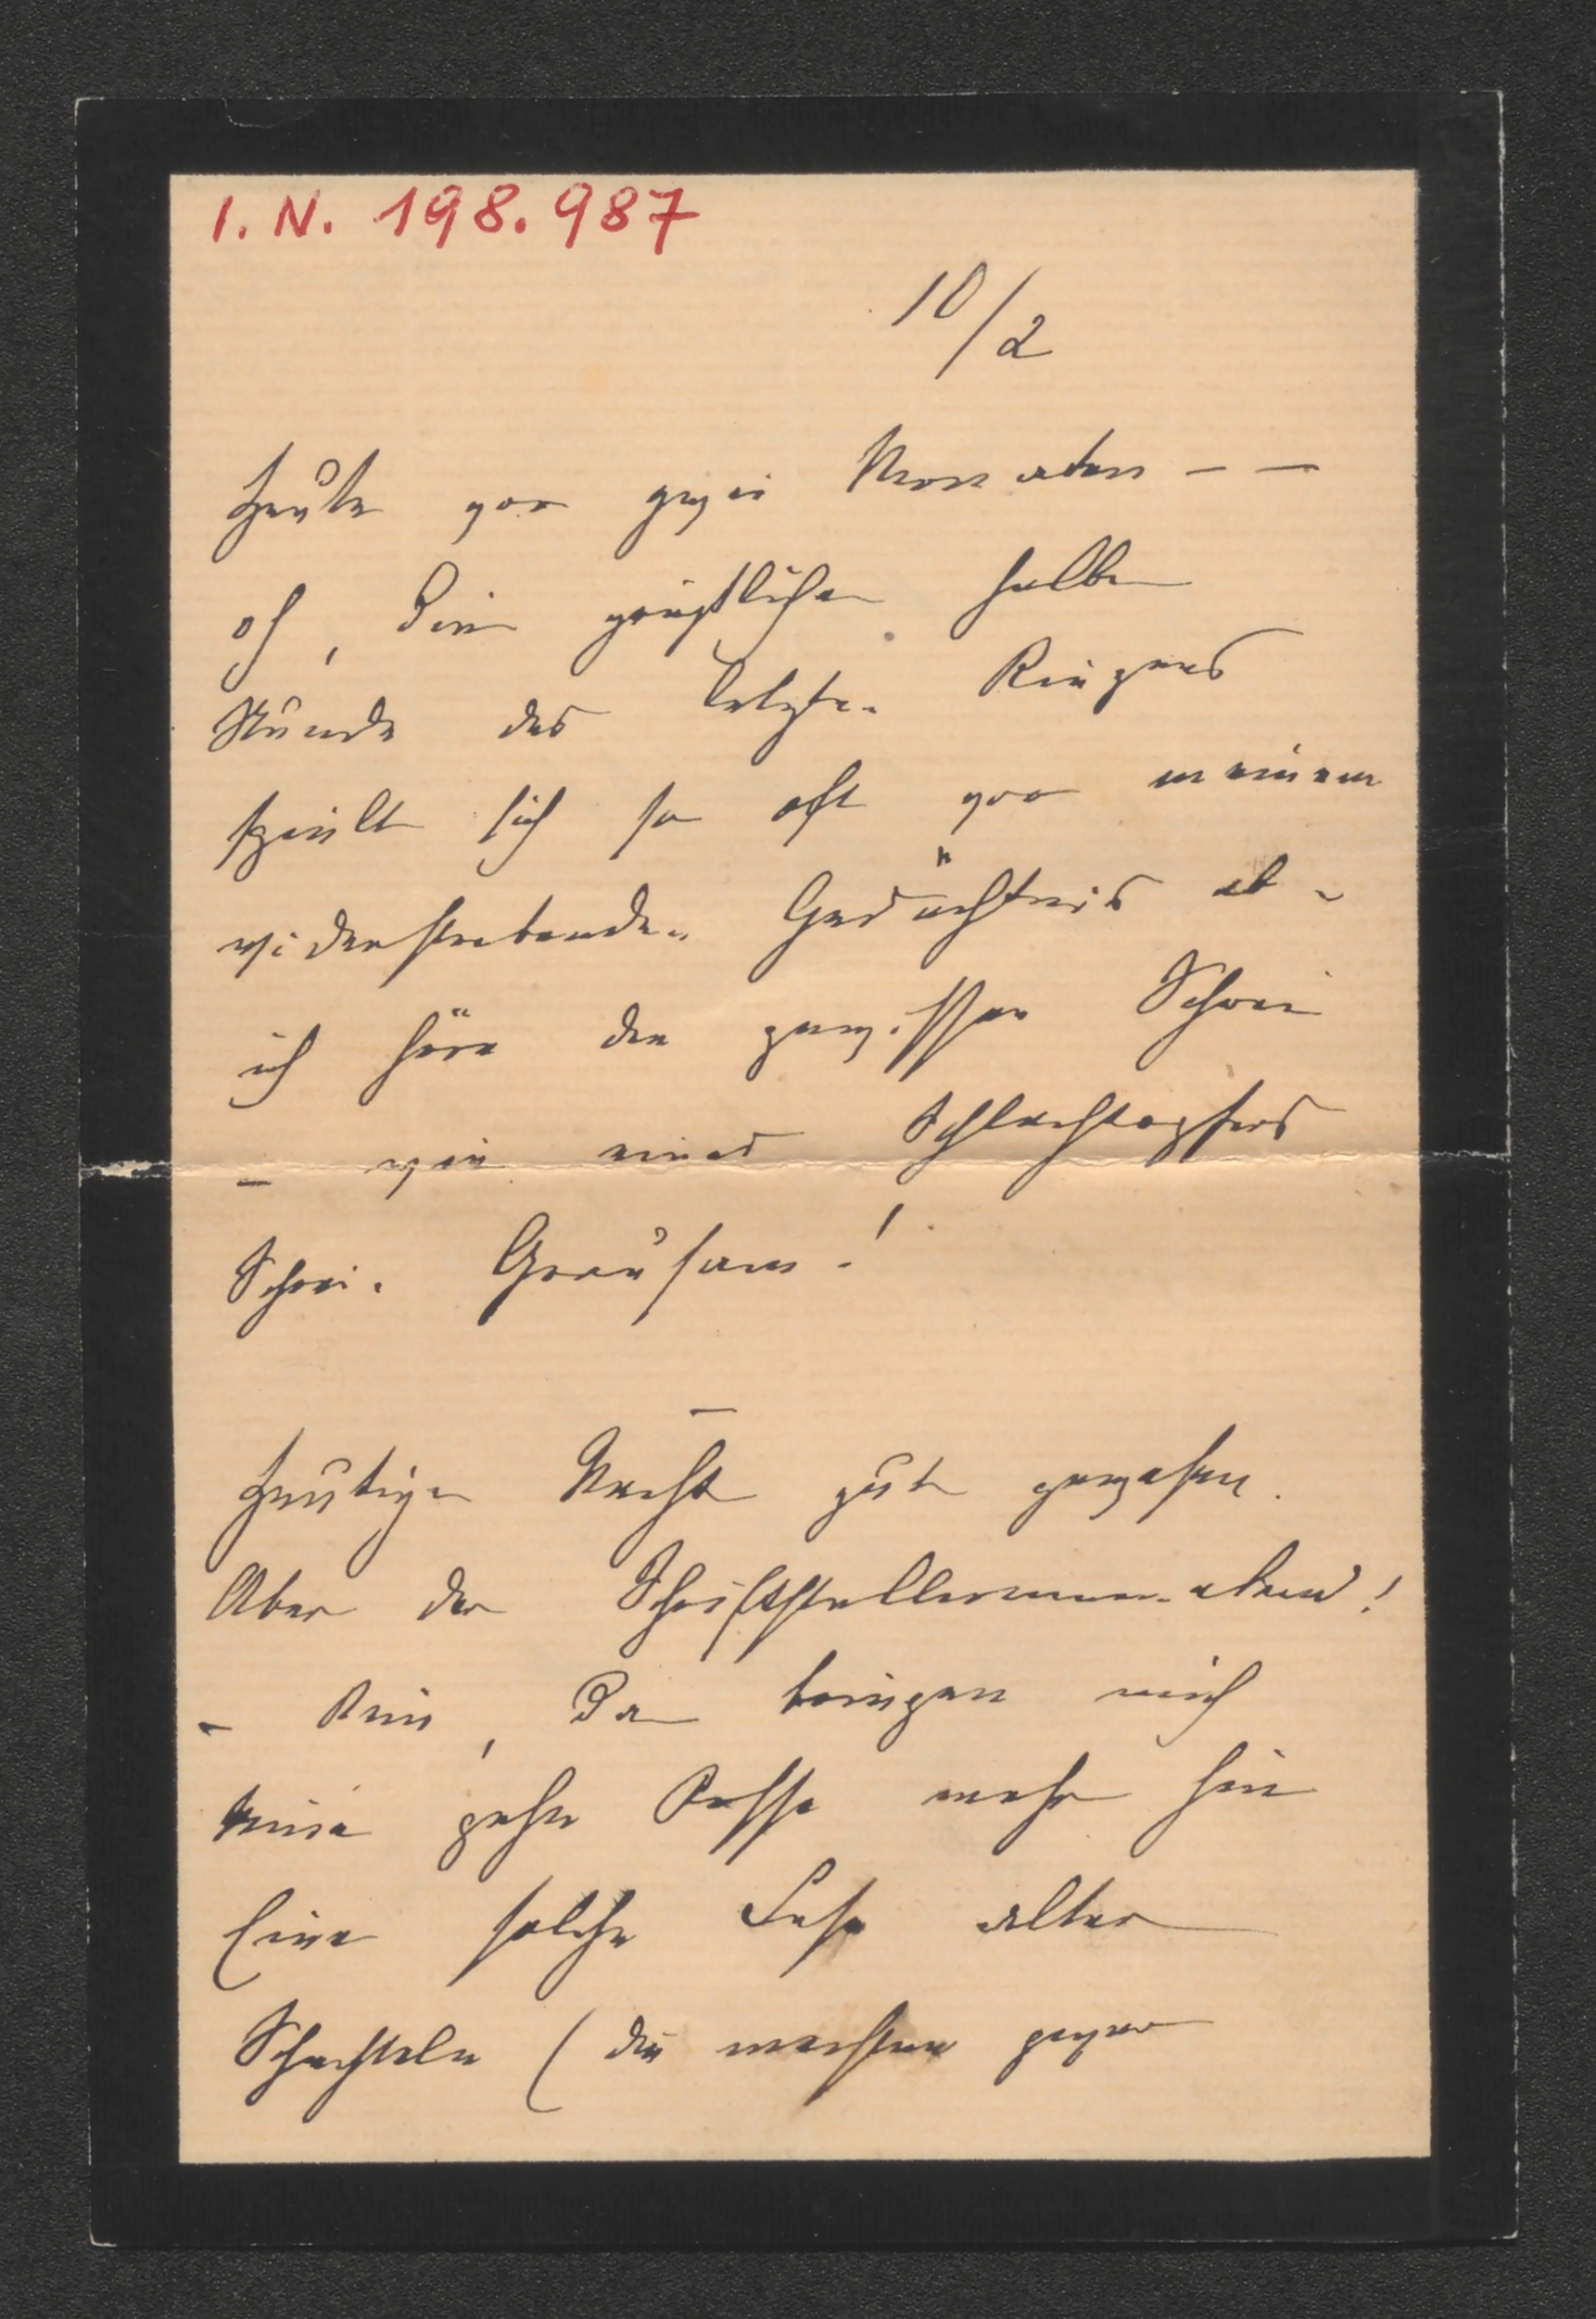 I. N. 198.987
10/2
Heute vor zwei Monaten – –
oh, die gräßliche halbe
Stunde des letzten Ringens
spielt sich so oft vor meinem
widerstrebenden Gedächtnis ab –
ich höre den gewissen Schrei
– wie eines Schlachtopfers
Schrei. Grausam!
–
Heutige Nacht gut gewesen.
Aber der Schriftstellerinnenabend!
– Nein, da bringen mich
keine zehn Rosse mehr hin
Eine solche Lese alter
Schachteln (die machten zwar